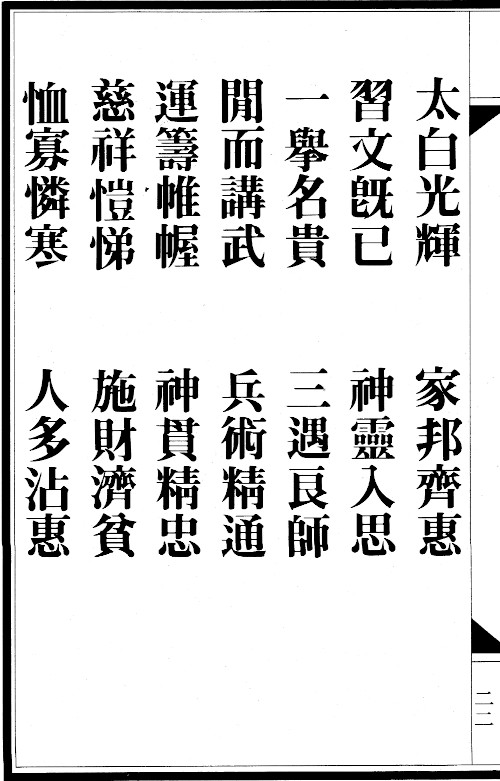 太白光輝　家邦齊惠
習文既已　神靈入思
一舉名貴　三遇良師
閒而講武　兵術精通
運籌帷幄　神貫精忠
慈祥愷悌　施財濟貧
恤寡憐寒　人多沾惠
二二